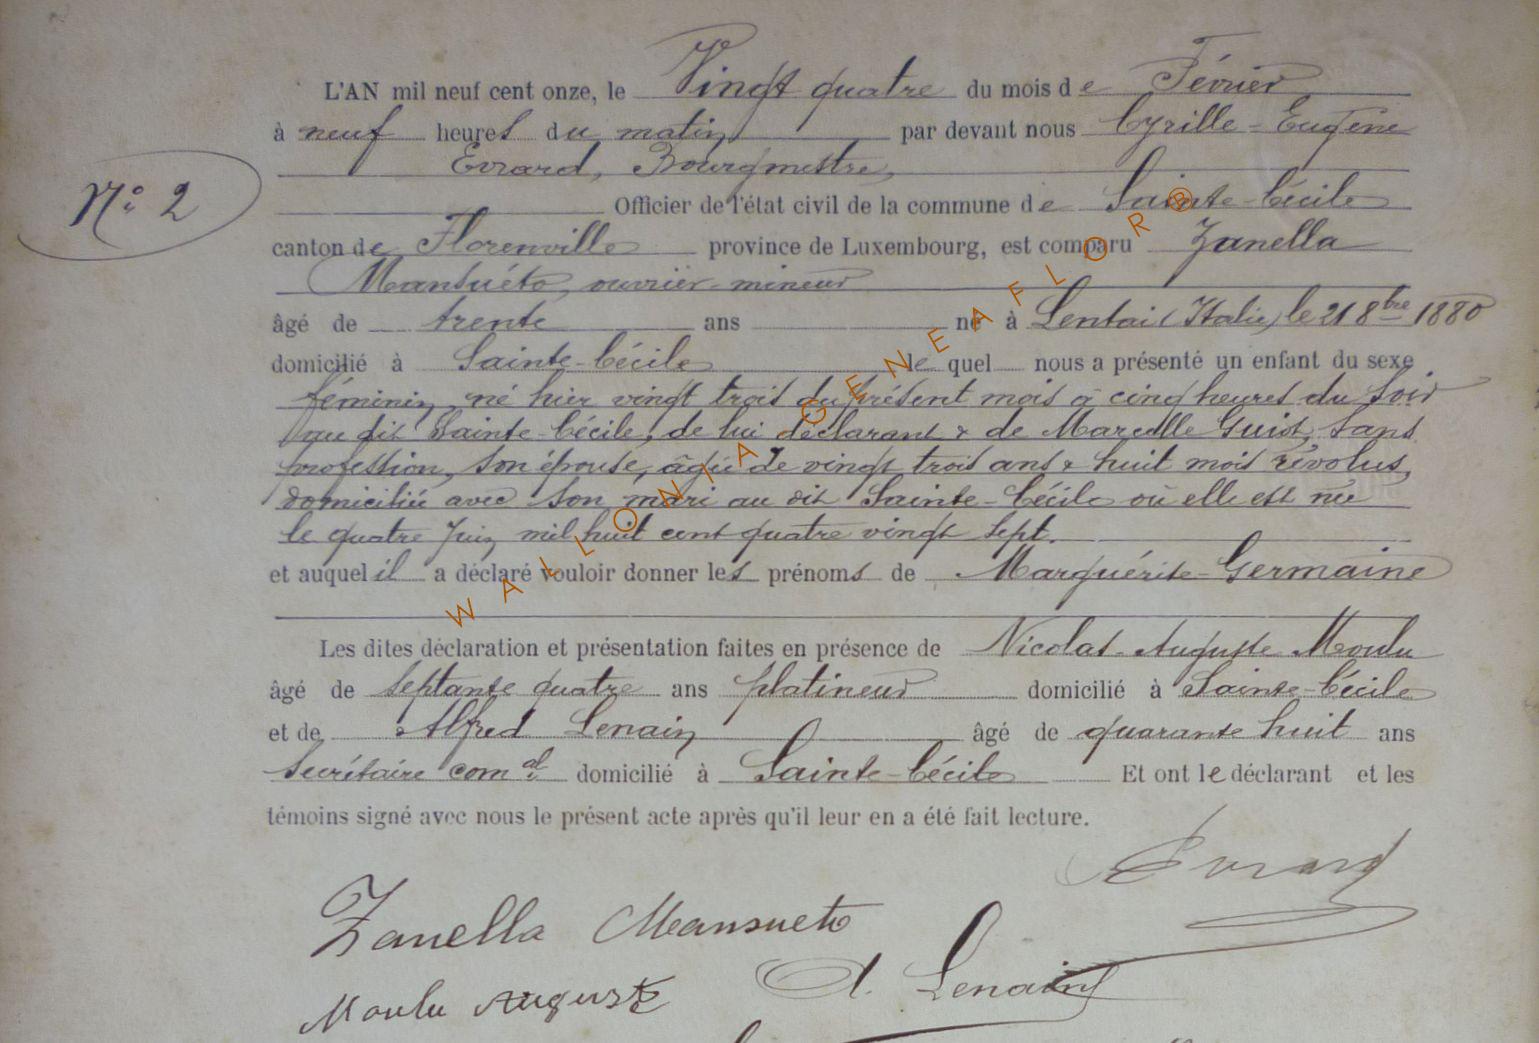 L'AN mil neuf cent onze, le Vingt quatre du mois de Février
à neuf heures du matin par devant nous Cyrille-Eugène
Evrard, Bourgmestre,
N° 2
Officier de l'état civil de la commune de Sainte-Cécile
canton de Florenville province de Luxembourg, est comparu Zanella
Mansuéto, ouvrier-mineur
âgé de trente ans né à Lentai (Italie) le 21 8bre 1880
domicilié à Sainte-Cécile lequel nous a présenté un enfant du sexe
féminin, né hier vingt trois du présent mois à cinq heures du soir
au dit Sainte-Cécile, de lui déclarant & de Marcelle Guiot, sans
profession, son épouse, âgée de vingt trois ans & huit mois révolus,
domiciliée avec son mari au dit Sainte-Cécile où elle est née
le quatre Juin mil huit cent quatre vingt sept.
et auquel il a déclaré vouloir donner les prénoms de Marguérite-Germaine
Les dites déclaration et présentation faites en présence de Nicolas-Auguste Moulu
âgé de septante quatre ans platineur domicilié à Sainte-Cécile
et de Alfred Lenain âgé de quarante huit ans
Secrétaire comal domicilié à Sainte-Cécile Et ont le déclarant et les
témoins signé avec nous le présent acte après qu'il leur en a été fait lecture.
Evrard
Zanella Mansueto
A. Lenain
Moulu Auguste
WALLONIA GENEAFLOR®